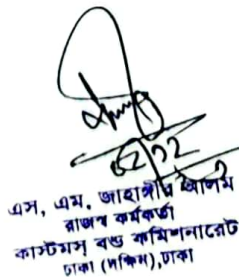 এস, এম, জাহাঙ্গীর আলম
রাজস্ব কর্মকর্তা
কাস্টমস্ বন্ড কমিশনারেট
ঢাকা (দক্ষিণ),ঢাকা